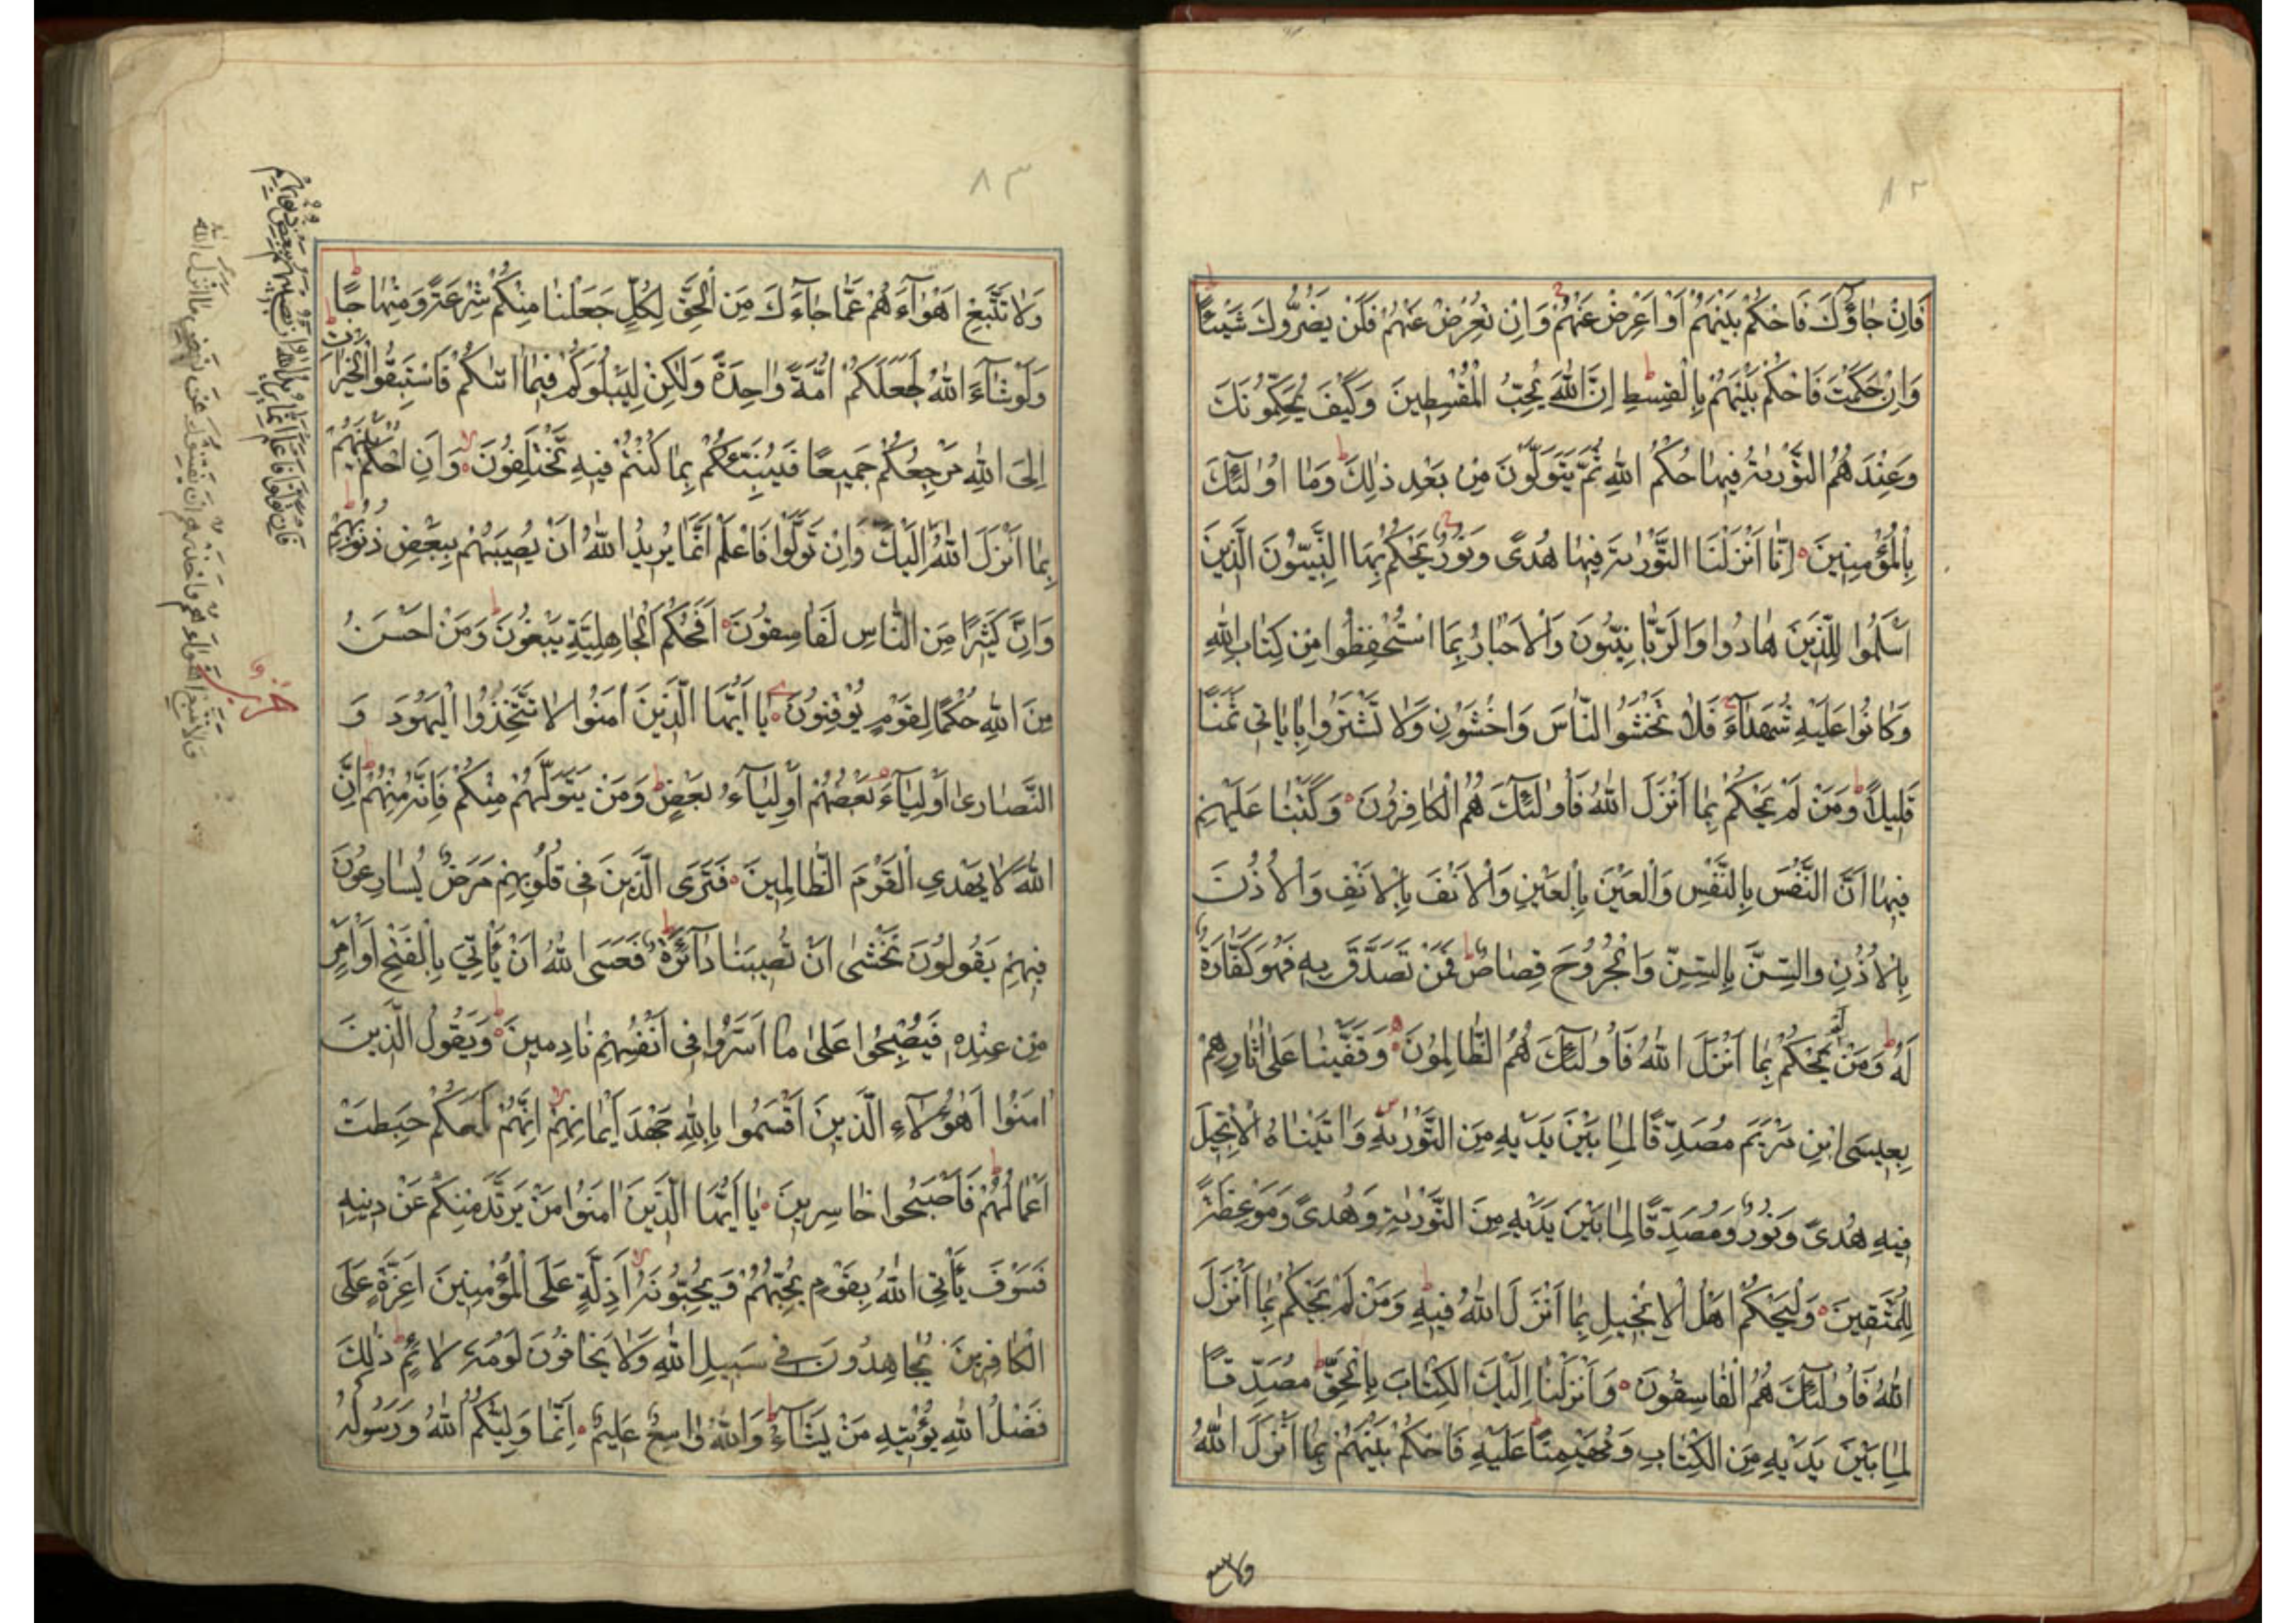 ٨٢
فَاِنْ جٰاؤُكَ فَاحْكُمْ بَيْنَهُمْ اَوْ اَعْرِضْ عَنْهُمْ وَاِنْ تُعْرِضْ عَنْهُمْ فَلَنْ يَضُرُّوكَ شَيْئًا
وَاِنْ حَكَمْتَ فَاحْكُمْ بَيْنَهُمْ بِالْقِسْطِ اِنَّ اللّٰهَ يُحِبُّ الْمُقْسِطِينَ وَكَيْفَ يُحَكِّمُونَكَ
وَعِنْدَهُمُ التَّوْرٰيةُ فِيهٰا حُكْمُ اللّٰهِ ثُمَّ يَتَوَلَّوْنَ مِنْ بَعْدِ ذٰلِكَ وَمٰا اُولٰئِكَ
بِالْمُؤْمِنِينَ اِنّٰا اَنْزَلْنَا التَّوْرٰيةَ فِيهٰا هُدًى وَنُورٌ يَحْكُمُ بِهَا النَّبِيُّونَ الَّذِينَ
اَسْلَمُوا لِلَّذِينَ هٰادُوا وَالرَّبّٰانِيُّونَ وَالْاَحْبٰارُ بِمَا اسْتُحْفِظُوا مِنْ كِتٰابِ اللّٰهِ
وَكٰانُوا عَلَيْهِ شُهَدٰآءَ فَلٰا تَخْشَوُا النّٰاسَ وَاخْشَوْنِ وَلٰا تَشْتَرُوا بِاٰيٰاتِي ثَمَنًا
قَلِيلًا وَمَنْ لَمْ يَحْكُمْ بِمٰا اَنْزَلَ اللّٰهُ فَاُولٰئِكَ هُمُ الْكٰافِرُونَ وَكَتَبْنٰا عَلَيْهِمْ
فِيهٰا اَنَّ النَّفْسَ بِالنَّفْسِ وَالْعَيْنَ بِالْعَيْنِ وَالْاَنْفَ بِالْاَنْفِ وَالْاُذُنَ
بِالْاُذُنِ وَالسِّنَّ بِالسِّنِّ وَالْجُرُوحَ قِصٰاصٌ فَمَنْ تَصَدَّقَ بِهِ فَهُوَ كَفّٰارَةٌ
لَهُ وَمَنْ لَمْ يَحْكُمْ بِمٰا اَنْزَلَ اللّٰهُ فَاُولٰئِكَ هُمُ الظّٰالِمُونَ وَقَفَّيْنٰا عَلٰى اٰثٰارِهِمْ
بِعِيسَى ابْنِ مَرْيَمَ مُصَدِّقًا لِمٰا بَيْنَ يَدَيْهِ مِنَ التَّوْرٰيةِ وَاٰتَيْنٰاهُ الْاِنْجِيلَ
فِيهِ هُدًى وَنُورٌ وَمُصَدِّقًا لِمٰا بَيْنَ يَدَيْهِ مِنَ التَّوْرٰيةِ وَهُدًى وَمَوْعِظَةً
لِلْمُتَّقِينَ وَلْيَحْكُمْ اَهْلُ الْاِنْجِيلِ بِمٰا اَنْزَلَ اللّٰهُ فِيهِ وَمَنْ لَمْ يَحْكُمْ بِمٰا اَنْزَلَ
اللّٰهُ فَاُولٰئِكَ هُمُ الْفٰاسِقُونَ وَاَنْزَلْنٰا اِلَيْكَ الْكِتٰابَ بِالْحَقِّ مُصَدِّقًا
لِمٰا بَيْنَ يَدَيْهِ مِنَ الْكِتٰابِ وَمُهَيْمِنًا عَلَيْهِ فَاحْكُمْ بَيْنَهُمْ بِمٰا اَنْزَلَ اللّٰهُ
٨٣
وَلٰا تَتَّبِعْ اَهْوٰآءَهُمْ عَمّٰا جٰاءَكَ مِنَ الْحَقِّ لِكُلٍّ جَعَلْنٰا مِنْكُمْ شِرْعَةً وَمِنْهٰاجًا
وَلَوْ شٰآءَ اللّٰهُ لَجَعَلَكُمْ اُمَّةً وٰاحِدَةً وَلٰكِنْ لِيَبْلُوَكُمْ فِيمٰا اٰتٰىكُمْ فَاسْتَبِقُوا الْخَيْرٰاتِ
اِلَى اللّٰهِ مَرْجِعُكُمْ جَمِيعًا فَيُنَبِّئُكُمْ بِمٰا كُنْتُمْ فِيهِ تَخْتَلِفُونَ وَاَنِ احْكُمْ بَيْنَهُمْ
بِمٰا اَنْزَلَ اللّٰهُ اِلَيْكَ وَاِنْ تَوَلَّوْا فَاعْلَمْ اَنَّمٰا يُرِيدُ اللّٰهُ اَنْ يُصِيبَهُمْ بِبَعْضِ ذُنُوبِهِمْ
وَاِنَّ كَثِيرًا مِنَ النّٰاسِ لَفٰاسِقُونَ اَفَحُكْمَ الْجٰاهِلِيَّةِ يَبْغُونَ وَمَنْ اَحْسَنُ
مِنَ اللّٰهِ حُكْمًا لِقَوْمٍ يُوقِنُونَ يٰا اَيُّهَا الَّذِينَ اٰمَنُوا لٰا تَتَّخِذُوا الْيَهُودَ وَ
النَّصٰارىٰ اَوْلِيٰآءَ بَعْضُهُمْ اَوْلِيٰآءُ بَعْضٍ وَمَنْ يَتَوَلَّهُمْ مِنْكُمْ فَاِنَّهُ مِنْهُمْ اِنَّ
اللّٰهَ لٰا يَهْدِي الْقَوْمَ الظّٰالِمِينَ فَتَرَى الَّذِينَ فِي قُلُوبِهِمْ مَرَضٌ يُسٰارِعُونَ
فِيهِمْ يَقُولُونَ نَخْشٰى اَنْ تُصِيبَنٰا دٰآئِرَةٌ فَعَسَى اللّٰهُ اَنْ يَأْتِيَ بِالْفَتْحِ اَوْ اَمْرٍ
مِنْ عِنْدِهِ فَيُصْبِحُوا عَلٰى مٰا اَسَرُّوا فِي اَنْفُسِهِمْ نٰادِمِينَ وَيَقُولُ الَّذِينَ
اٰمَنُوا اَهٰؤُلٰآءِ الَّذِينَ اَقْسَمُوا بِاللّٰهِ جَهْدَ اَيْمٰانِهِمْ اِنَّهُمْ لَمَعَكُمْ حَبِطَتْ
اَعْمٰالُهُمْ فَاَصْبَحُوا خٰاسِرِينَ يٰا اَيُّهَا الَّذِينَ اٰمَنُوا مَنْ يَرْتَدَّ مِنْكُمْ عَنْ دِينِهِ
فَسَوْفَ يَأْتِي اللّٰهُ بِقَوْمٍ يُحِبُّهُمْ وَيُحِبُّونَهُ اَذِلَّةٍ عَلَى الْمُؤْمِنِينَ اَعِزَّةٍ عَلَى
الْكٰافِرِينَ يُجٰاهِدُونَ فِي سَبِيلِ اللّٰهِ وَلٰا يَخٰافُونَ لَوْمَةَ لٰائِمٍ ذٰلِكَ
فَضْلُ اللّٰهِ يُؤْتِيهِ مَنْ يَشٰآءُ وَاللّٰهُ وٰاسِعٌ عَلِيمٌ اِنَّمٰا وَلِيُّكُمُ اللّٰهُ وَرَسُولُهُ
فان تولوا فاعلم انما يريد الله ان يصيبهم ببعض ذنوبهم
ولا تتبع اهواءهم واحذرهم ان يفتنوك عن بعض ما انزل الله